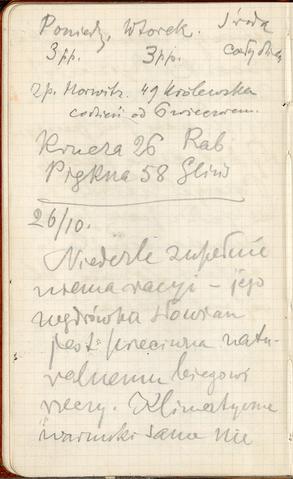 Poniedz, Wtorek. Środa
3 pp. 3 pp. cały dzień
zp. Horwitz. 49 Królewska
codzień od 6 wieczorem.
Krucza 26 Rab
Piękna 58 Glins
26/10.
Niederle zupełnie
niema racyi – jego
wędrówka Słowian
jest przeciwna natu-
ralnemu biegowi
rzeczy. Klimatyczne
warunki same nie